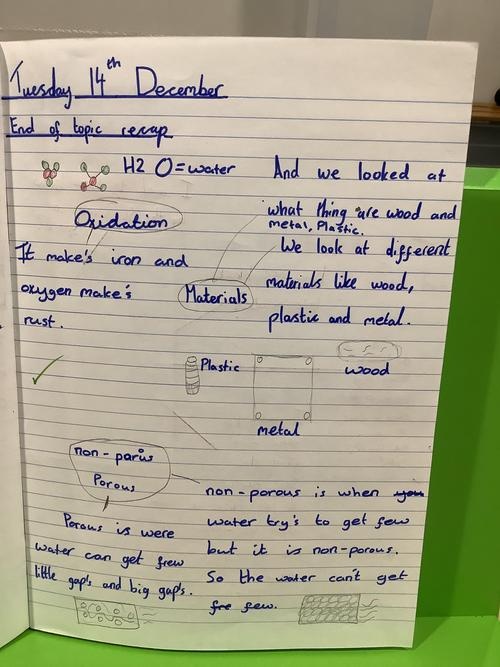 Tuesday 14th December
End of topic recap
H2 O = water
Oxidation
It make's iron and
oxygen make's
rust.
And we looked at
what thing are wood and
metal, Plastic.
We look at different
materials like wood,
plastic and metal.
Materials
Plastic
wood
metal
non-parus
Porous
Porous is were
water can get frew
little gap's and big gap's.
non-porous is when you
water try's to get few
but it is non-porous.
So the water can't get
fre few.